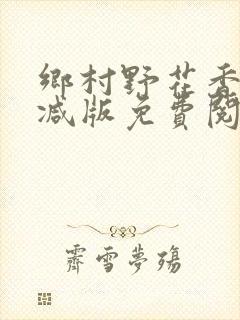 鄉村野花香
减版免費閱
霽雪夢殤